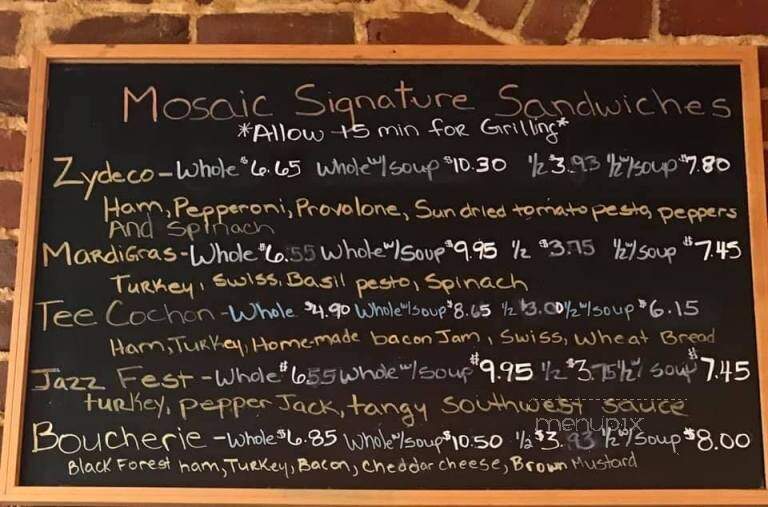 Mosaic Signature Sandwiches
*Allow +5 min for Grilling*
Zydeco - Whole $6.65 Whole w/soup $10.30 1/2 $3.93 1/2 w/soup $7.80
Ham, Pepperoni, Provolone, Sun dried tomato pesto, peppers
And Spinach
MardiGras - Whole $6.55 Whole w/Soup $9.95 1/2 $3.75 1/2 w/soup $7.45
Turkey, Swiss, Basil pesto, Spinach
Tee Cochon - Whole $4.90 Whole w/soup $8.65 1/2 $3.00 1/2 w/soup $6.15
Ham, Turkey, Home-made bacon Jam, Swiss, Wheat Bread
Jazz Fest - Whole $6.55 Whole w/soup $9.95 1/2 $3.75 1/2 w/ soup $7.45
turkey, pepper Jack, tangy southwest sauce
menupix
Boucherie - Whole $6.85 Whole w/soup $10.50 1/2 $3.93 1/2 w/soup $8.00
Black Forest ham, Turkey, Bacon, cheddar cheese, Brown Mustard